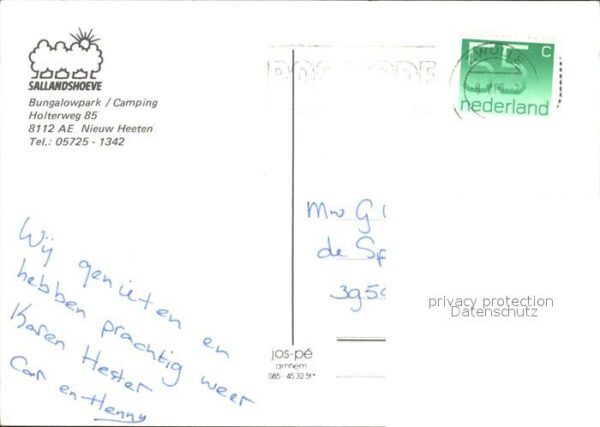 SALLANDSHOEVE
Bungalowpark / Camping
Holterweg 85
8112 AE Nieuw Heeten
Tel.: 05725 - 1342
ZWOLLE
55 c
nederland
Wij genieten en
hebben prachtig weer
Karen Hester
Cor en Henny
Mw G
de Sp
395
privacy protection
Datenschutz
jos-pé
arnhem
085-45 32 51*